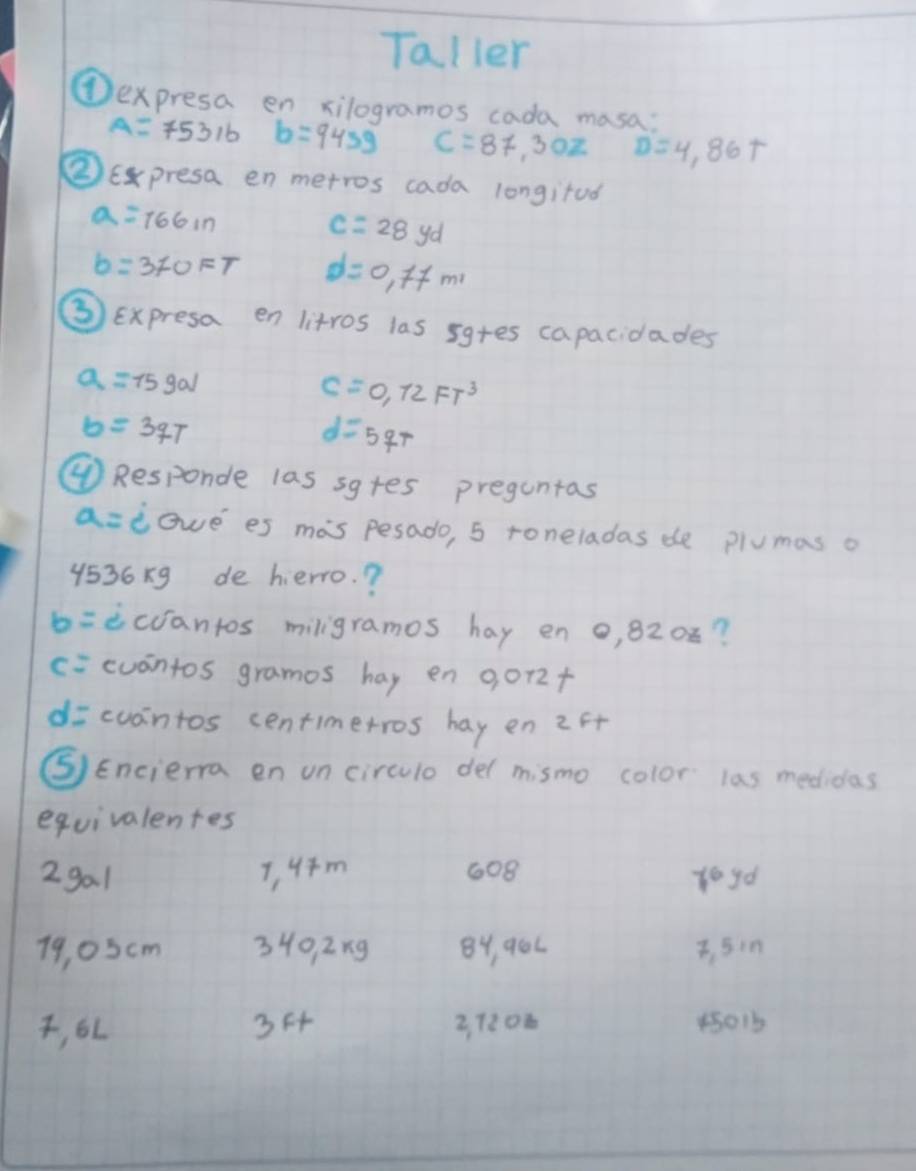 Taller
① expresa en kilogramos cada masa:
A= 7531b b=945g C=87,3oz D=4,86T
② Expresa en metros cada longitud
a=166in c=28 yd
b=370FT d=0,77 mi
③ Expresa en litros las sgtes capacidades
a=15gal c=0,12 FT³
b=3qT d=5qT
④ Responde las sgtes preguntas
a=¿Qué es más pesado, 5 toneladas de plumas o
4536 kg de hierro.?
b=¿cuántos miligramos hay en 0,82oz?
c= cuántos gramos hay en 0,012t
d= cuántos centimetros hay en 2 ft
⑤ Encierra en un circulo del mismo color las medidas
equivalentes
2gal 1,47m 608 yd
19,05cm 340,2kg 84,90L 7,5in
7,6L 3 ft 2,12 750lb